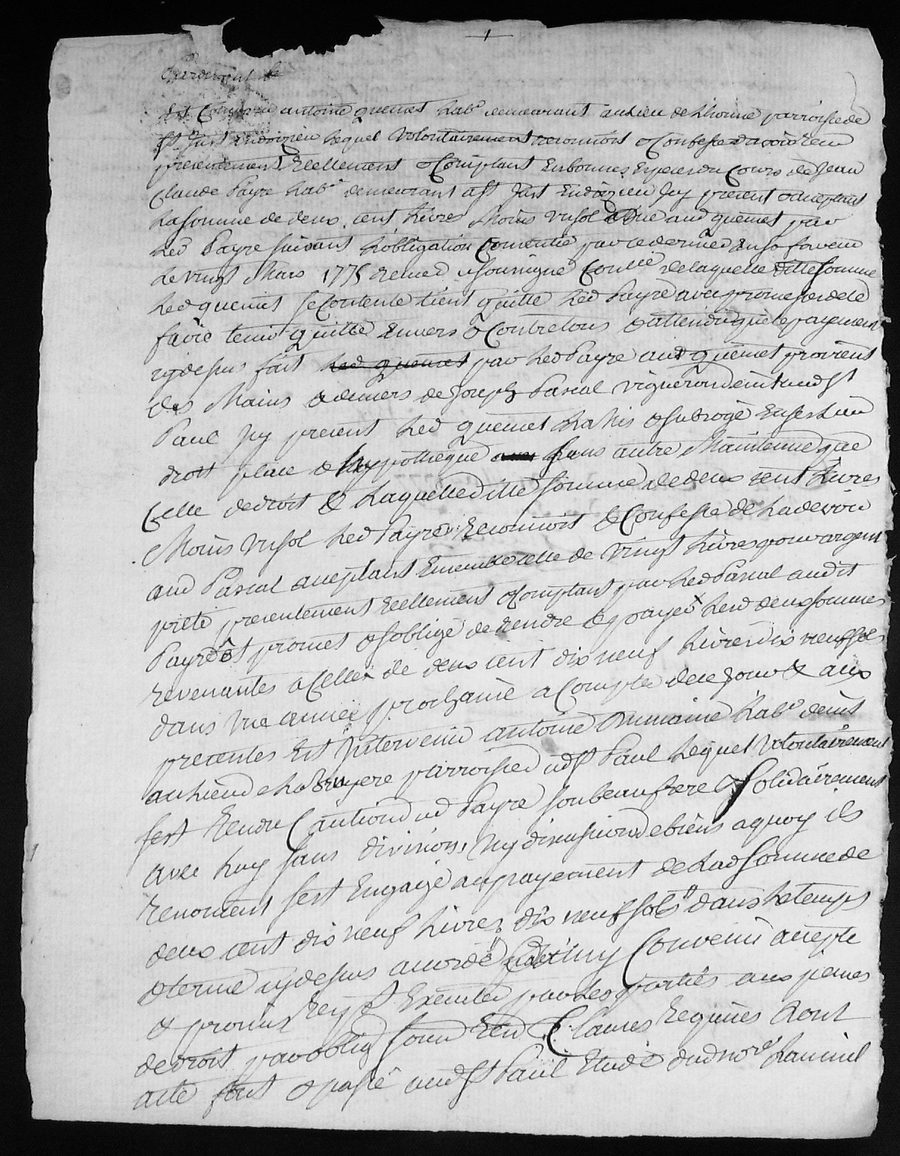 1
Est Comparu antoine quemet hab.t demeurant au lieu de Lhorme parroisse de
St Just Lequel Volontairement reconnoit & Confesse avoir recu
presentement Reellement & Comptant En bonnes Especes du Cours de Jean
Claude Payre hab.t demeurant a St Just En icy present acceptant
La Somme de deux cent Livres Moins un sol düe aud quemet par
Led Payre suivant L'obligation Consentie par ce dernier a sa faveur
Le vingt Mars 1775 Receu No.re soussigné Con.lee de laquelle ditte Somme
Led quemet se Contente tient quitte Led Payre avec promesse de le
faire tenir quitte Envers & Contre tous & attendu que le payement
cy dessus fait Led quemet par Led Payre aud quemet provient
des Mains & deniers de Joseph Pascal Vigneron de St
Paul icy present Led quemet L'a Mis & subrogé En ses Lieu
droit place & hypotheque sans autre Maintenue que
Celle de droit & Laquelle ditte Somme de deux cent Livres
Moins un sol Led Payre Reconnoit & Confesse La devoir
aud Pascal acceptant Ensemble celle de vingt Livres pour argent
preté presentement Reellement & Comptant par Led Pascal audit
Payre Et promet & s'oblige de rendre & payer Lesd deux Sommes
revenantes a Celle de deux cent dix neuf Livres dix neuf sols
dans une année prochaine a Compter de ce Jour & aux
presentes Est Intervenu antoine hab.t demt
au Lieu de La Bruyere parroisse dud St Paul Lequel Volontairement
s'est Rendu Caution dud Payre son beau frere & Solidairement
avec Luy sans division, Ny discussion de biens a quoy ils
renoncent s'est Engagé au payement de Lad Somme de
deux cent dix neuf Livres dix neuf sols dans Le temps
& terme cy dessus accordé Convenu accepté
& promis Resp.t Executer par Les parties aux peines
de droit par oblig Soum Ren & Clauses Requises dont
acte fait & passé aud St Paul Etude dud no.re Lan mil